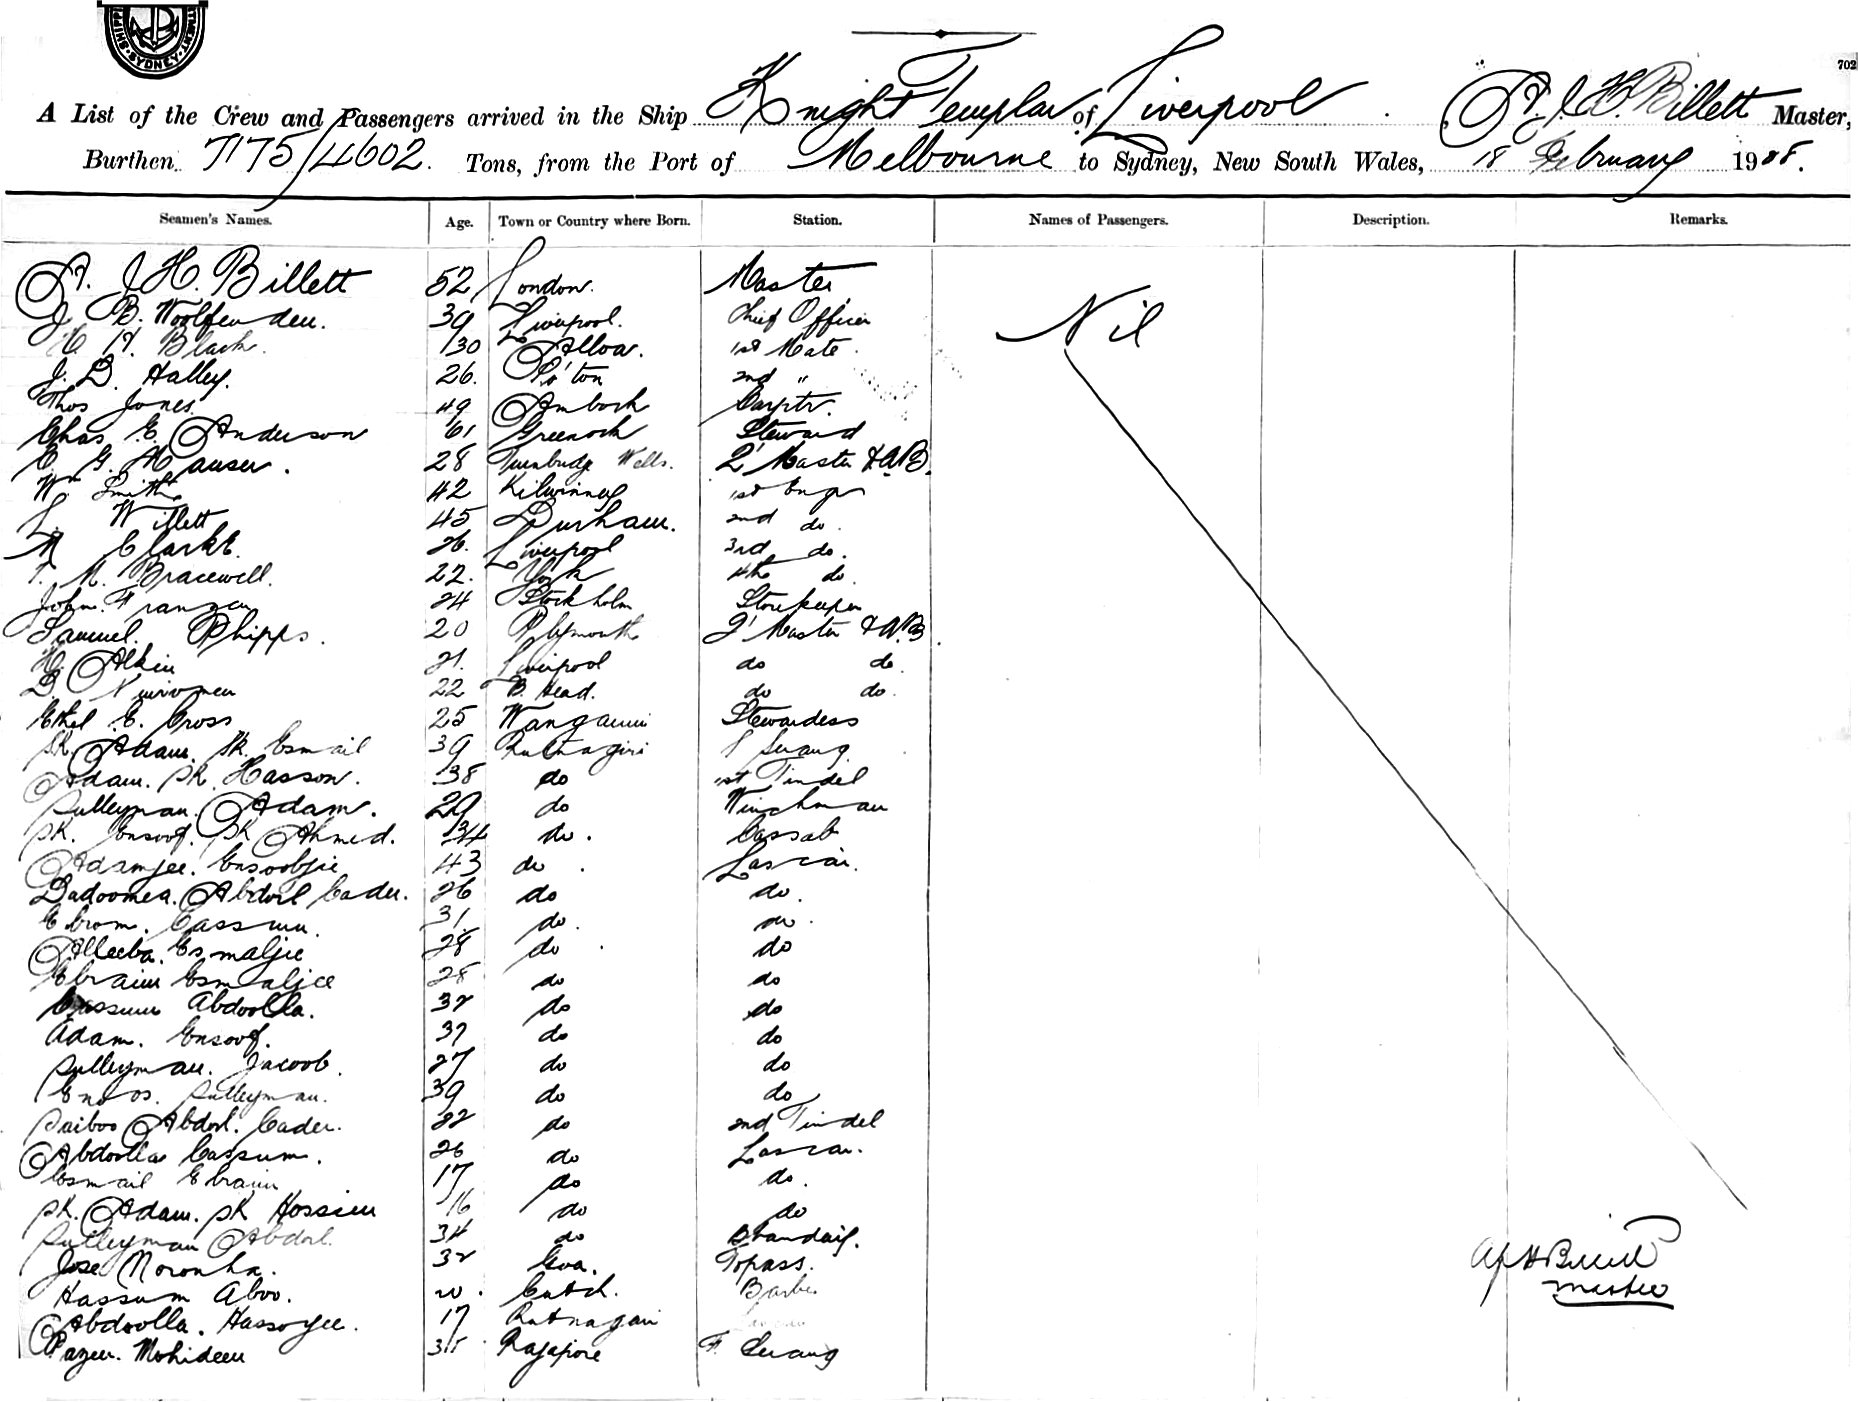 SHIPPING DEPARTMENT SYDNEY
702
A List of the Crew and Passengers arrived in the Ship Knight Templar of Liverpool, A. J. H. Billett Master,
Burthen 7175/4602. Tons, from the Port of Melbourne to Sydney, New South Wales, 18 February 1908.
Seamen's Names. Age. Town or Country where Born. Station. Names of Passengers. Description. Remarks.
A. J. H. Billett 52 London. Master
J B. Woolfenden. 39 Liverpool. Chief Officer
Nil
H. Black. 30 Alloa. 1st Mate
J. D. Halley. 26. P'ton 2nd "
Thos Jones. 49 Carptr.
Chas E. Anderson 61 Greenock Steward
G. Hauser. 28 Tunbridge Wells. 2' Master & AB.
Wm Smith 42 Kilwinney 1st Engr
L. Willett 45 Durham. 2nd do.
Clarke. 26. Liverpool 3rd do.
M. Bracewell. 22. York 4th do.
John. Franzen 24 Stockholm Storekeeper
Samuel. Phipps. 20 Plymouth 2' Master & A.B.
H. Atkin 21. Liverpool do do.
D. 22 B. Head. do do.
Ethel E. Cross 25 Wanganui Stewardess
Sk. Adam. Sk. Esmail 39 Rutnagiri Serang.
Adam. Sk. Hasson. 38 do 1st Tindel
Sulleyman. Adam. 29 do Winchman
Sk. Ensoof. Sk Ahmed. 34 do. Cassab
Adamjee. Ensoobjie 43 do. Lascar.
Dadoomea. Abdool Cader. 26 do do.
Ebrom. Cassum. 31. do. do.
Alleeba. Esmaljie 28 do. do
Ebraim Esmaljee 28 do do
Cassum Abdoolla. 32 do do
Adam. Ensoof. 37 do do
Sulleyman. Jacoob. 27 do do
Enoos. Sulleyman. 39 do do
Saiboo Abdool. Cader. 22 do 2nd Tindel
Abdoolla Cassum. 26 do Lascar.
Esmail Ebraim 17 do do.
Sk. Adam. Sk Hossien 16 do do
Sulleyman Abdool. 34 do Bhandary.
Jose Noronha. 32 Goa. Topass.
Hassum Aboo. 20. Cutch. Barber
Abdoolla. Hassoyee. 17 Rutnagari
Mohideen Rajapore F. Serang
AJH Billett
Master